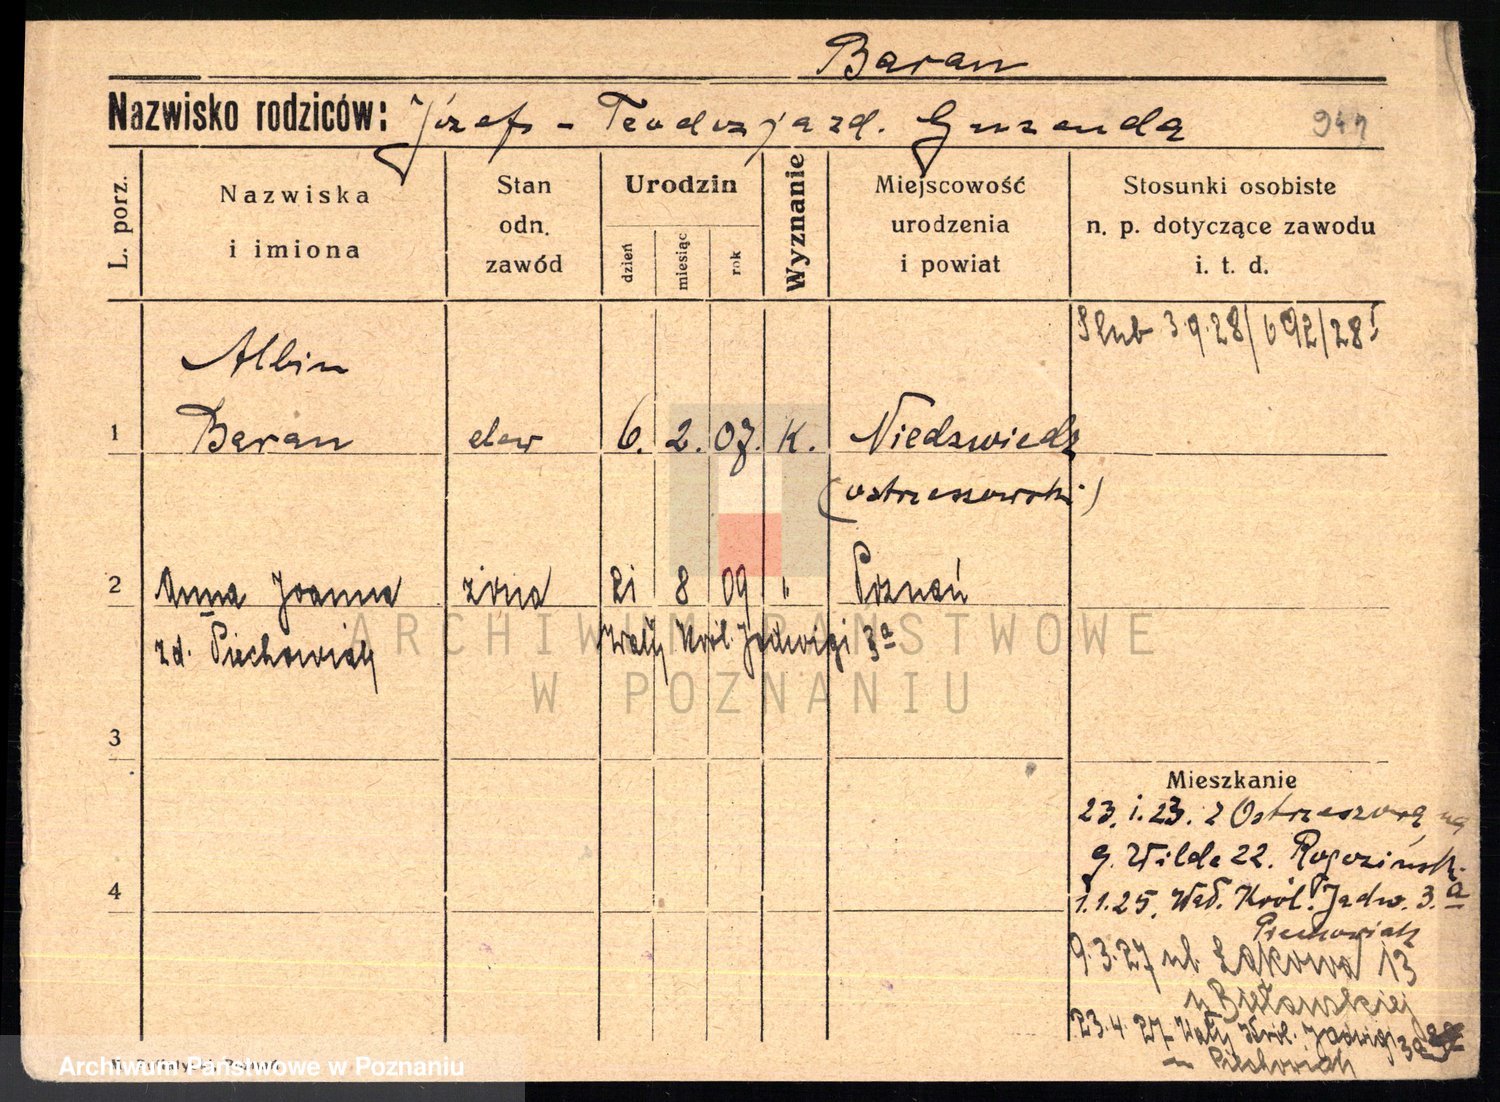 Baran
Nazwisko rodziców: Józef - Teodozja zd. Gruzenda 947
L. porz.
Nazwiska
i imiona
Stan
odn.
zawód
Urodzin
dzień
miesiąc
rok
Wyznanie
Miejscowość
urodzenia
i powiat
Stosunki osobiste
n. p. dotyczące zawodu
i. t. d.
Ślub 3.9.28/692/28
Albin
1 Baran elew 6. 2. 07. K. Niedzwiedz
(ostrzeszowski)
2 Anna Joanna żona 21 8 09 " Poznań
zd. Piechowiak Wały Król. Jadwigi 3a
3
Mieszkanie
23. 1. 23. z Ostrzeszowa na
g. Wilde 22. Rogoziński
4
1.1.25. Wał. Król. Jadw. 3.a
Piechowiak
9.3.27 ul. Łąkowa 13
u Bietawskiej
23.4.27 Wały Król. Jadwigi 3a
Piechowiak
ARCHIWUM PAŃSTWOWE
W POZNANIU
Archiwum Państwowe w Poznaniu